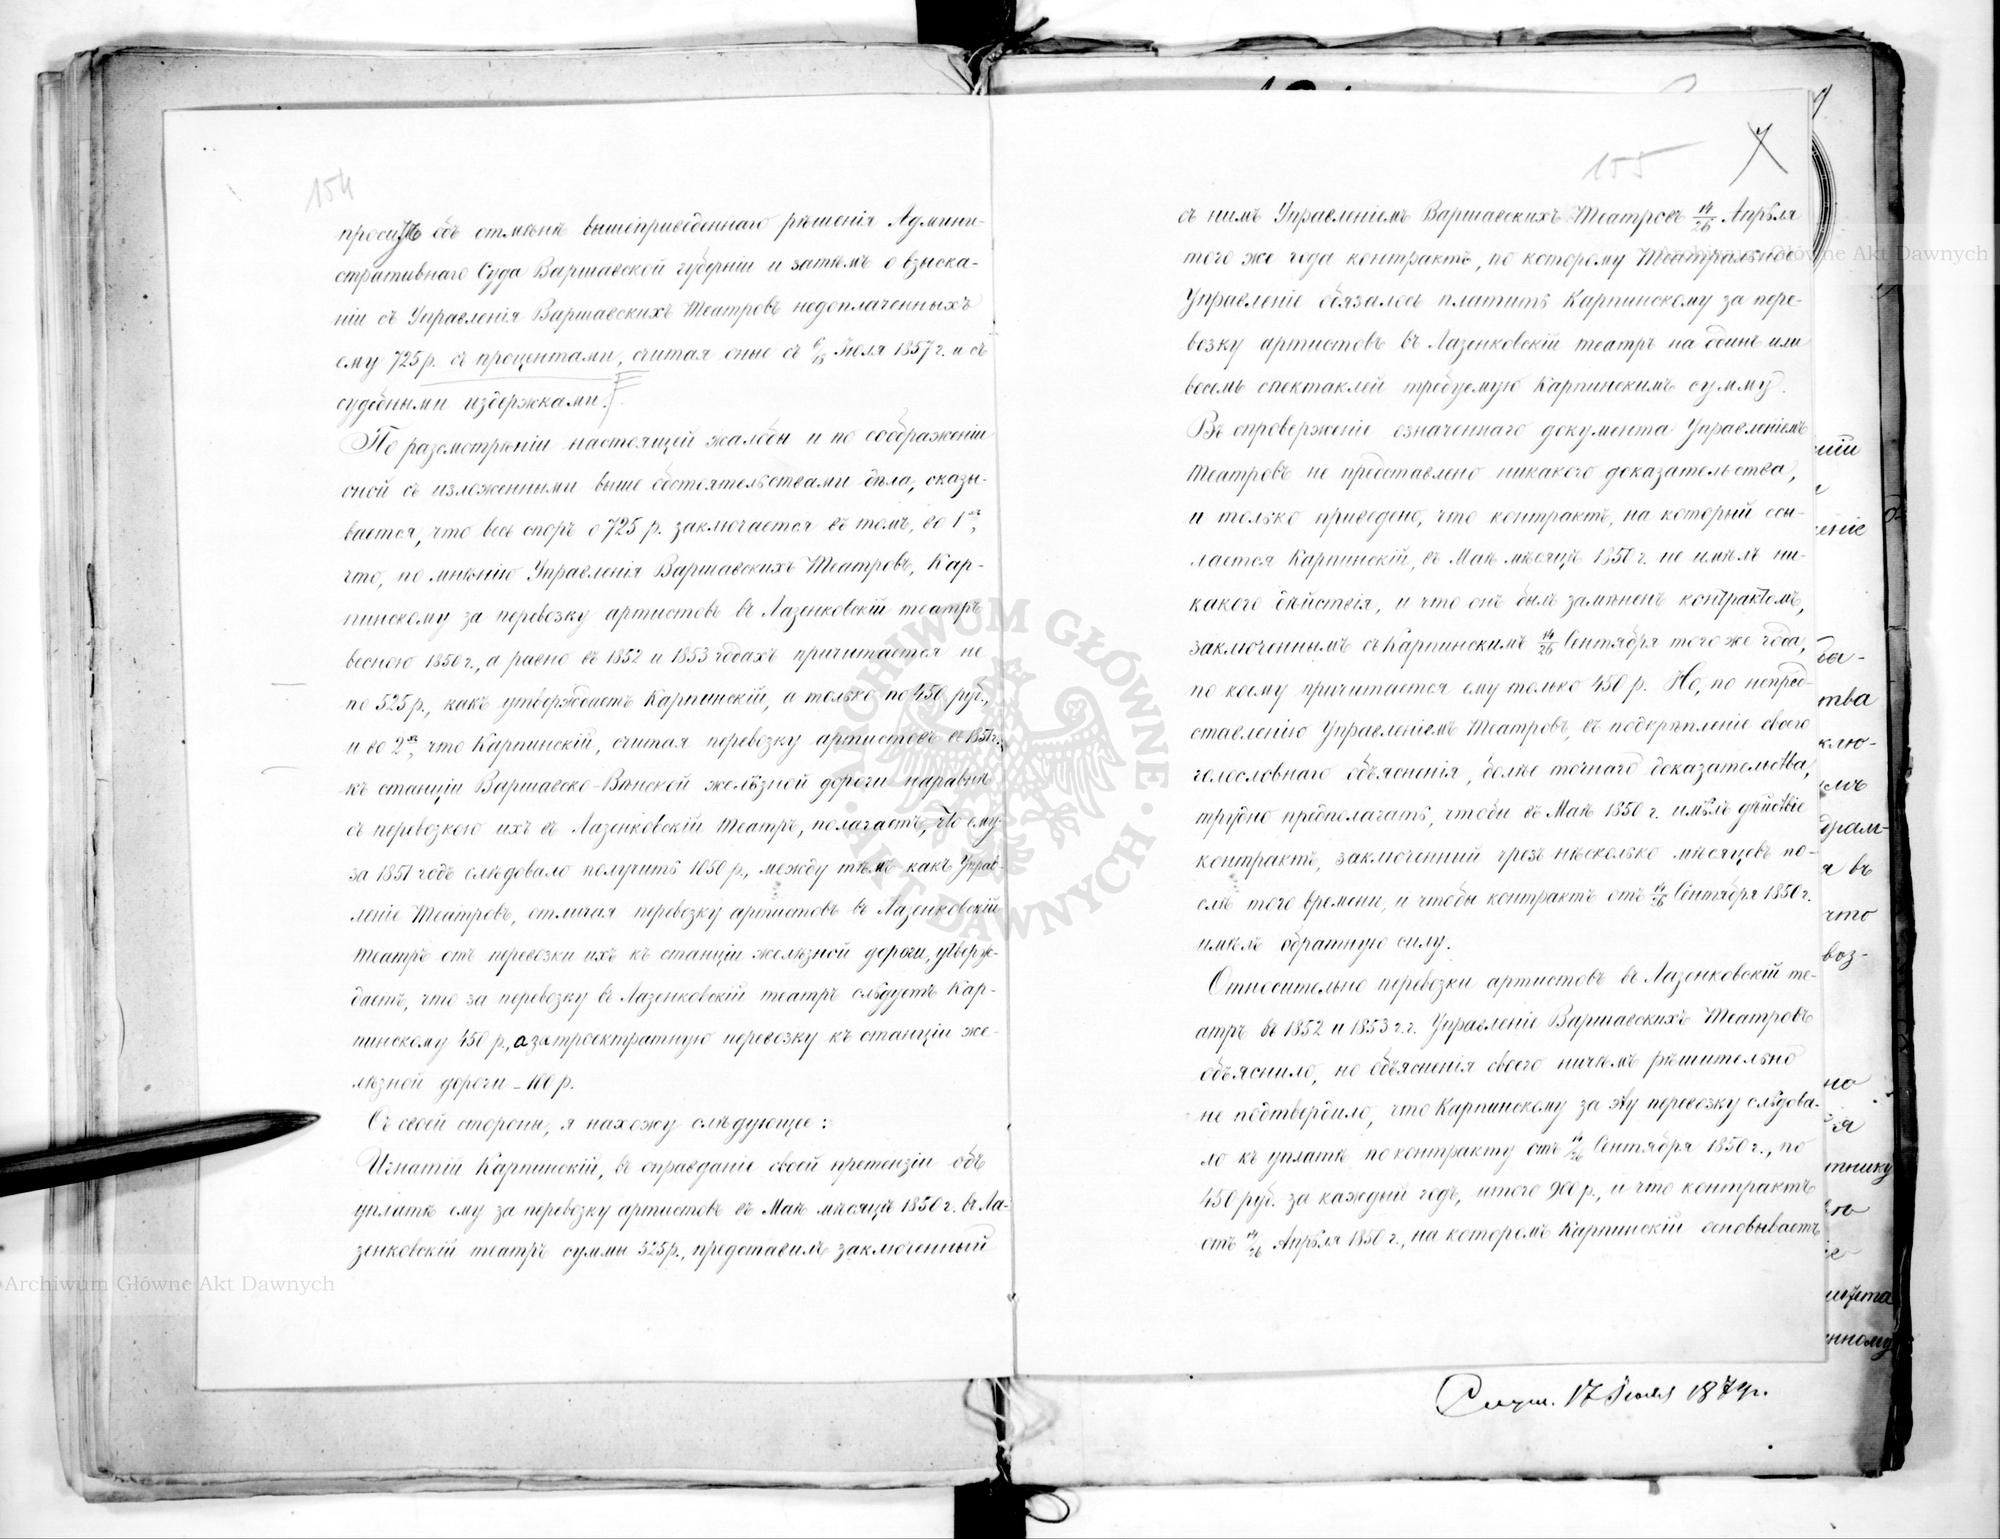 154
проситъ объ отмѣнѣ вышеприведеннаго рѣшенія Админи-
стративнаго Суда Варшавской губерніи и затѣмъ о взыска-
ніи съ Управленія Варшавскихъ Театровъ недоплаченныхъ
ему 725 р. съ процентами, считая оные съ 6/18 Іюля 1857 г. и съ
судебными издержками.
По разсмотрѣніи настоящей жалобы и по соображеніи
оной съ изложенными выше обстоятельствами дѣла, оказы-
вается, что весь споръ о 725 р. заключается въ томъ, во 1хъ,
что, по мнѣнію Управленія Варшавскихъ Театровъ, Кар-
пинскому за перевозку артистовъ въ Лазенковскій театръ
весною 1850 г., а равно въ 1852 и 1853 годахъ причитается не
по 525 р., какъ утверждаетъ Карпинскій, а только по 450 руб.,
и во 2хъ, что Карпинскій, считая перевозку артистовъ въ 1851 г.
къ станціи Варшавско-Вѣнской желѣзной дороги наравнѣ
съ перевозкою ихъ въ Лазенковскій театръ, полагаетъ, что ему
за 1851 годъ слѣдовало получить 1050 р., между тѣмъ какъ Управ-
леніе Театровъ, отличая перевозку артистовъ въ Лазенковскій
театръ отъ перевозки ихъ къ станціи желѣзной дороги, утверж-
даетъ, что за перевозку въ Лазенковскій театръ слѣдуетъ Кар-
пинскому 450 р., а за троекратную перевозку къ станціи же-
лѣзной дороги – 100 р.
Съ своей стороны, я нахожу слѣдующее:
Игнатій Карпинскій, въ оправданіе своей претензіи объ
уплатѣ ему за перевозку артистовъ въ Маѣ мѣсяцѣ 1850 г. въ Ла-
зенковскій театръ суммы 525 р., представилъ заключенный
155
7
съ нимъ Управленіемъ Варшавскихъ Театровъ 14/26 Апрѣля
того же года контрактъ, по которому Театральное
Управленіе обязалось платить Карпинскому за пере-
возку артистовъ въ Лазенковскій театръ на одинъ или
восемь спектаклей требуемую Карпинскимъ сумму.
Въ опроверженіе означеннаго документа Управленіемъ
Театровъ не представлено никакого доказательства,
и только приведено, что контрактъ, на который ссы-
лается Карпинскій, въ Маѣ мѣсяцѣ 1850 г. не имѣлъ ни-
какого дѣйствія, и что онъ былъ замѣненъ контрактомъ,
заключеннымъ съ Карпинскимъ 14/26 Сентября того же года,
по коему причитается ему только 450 р. Но, по непред-
ставленію Управленіемъ Театровъ, въ подкрѣпленіе своего
голословнаго объясненія, болѣе точнаго доказательства,
трудно предполагать, чтобы въ Маѣ 1850 г. имѣлъ дѣйствіе
контрактъ, заключенный чрезъ нѣсколько мѣсяцевъ по-
слѣ того времени, и чтобы контрактъ отъ 14/26 Сентября 1850 г.
имѣлъ обратную силу.
Относительно перевозки артистовъ въ Лазенковскій те-
атръ въ 1852 и 1853 г.г. Управленіе Варшавскихъ Театровъ
объяснило, но объясненія своего ничѣмъ рѣшительно
не подтвердило, что Карпинскому за эту перевозку слѣдова-
ло къ уплатѣ по контракту отъ 14/26 Сентября 1850 г., по
450 руб. за каждый годъ, итого 900 р., и что контрактъ
отъ 14/26 Апрѣля 1850 г., на которомъ Карпинскій основываетъ
17 Іюля 1879 г.
Archiwum Główne Akt Dawnych
Archiwum Główne Akt Dawnych
ARCHIWUM GŁÓWNE AKT DAWNYCH